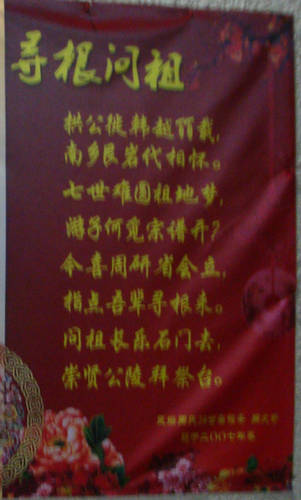 寻根问祖
拱公徙韩越百载,
南乡艮岩代相怀。
七世难圆祖地梦,
游子何觅宗谱开?
今喜周研省会立,
指点吾辈寻根来。
问祖长乐石门去,
崇贤公陵拜祭台。
二〇〇七年冬